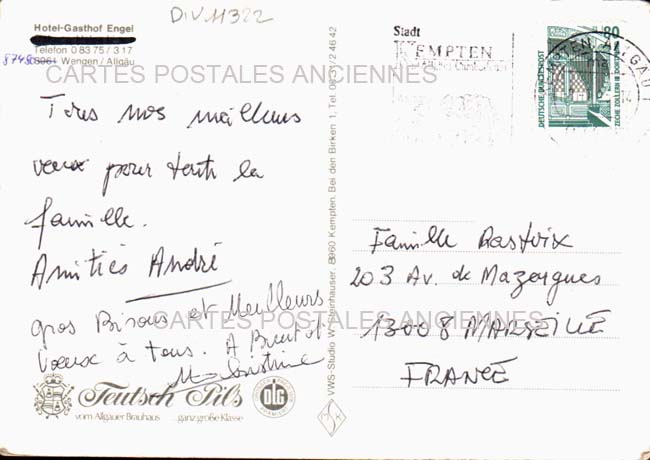 DIV 11322
Hotel-Gasthof Engel
Telefon 0 83 75 / 3 17
87480 8961 Wengen / Allgäu
CARTES POSTALES ANCIENNES
Tous nos meilleurs
vœux pour toute la
famille.
Amitiés André
gros Bisous et Meilleurs
Vœux à tous. A Bientôt
Teutsch Pils
vom Allgäuer Brauhaus ...ganz große Klasse
DLG
VWS-Studio W. Steinhauser, 8960 Kempten, Bei den Birken 1, Tel. 08 31/2 46 42
Stadt
KEMPTEN
80
DEUTSCHE BUNDESPOST
ZECHE ZOLLERN II DORTMUND
KEMPTEN, ALLGÄU 1
Famille Rastoix
203 Av. de Mazargues
13008 MARSEILLE
FRANCE
CARTES POSTALES ANCIENNES